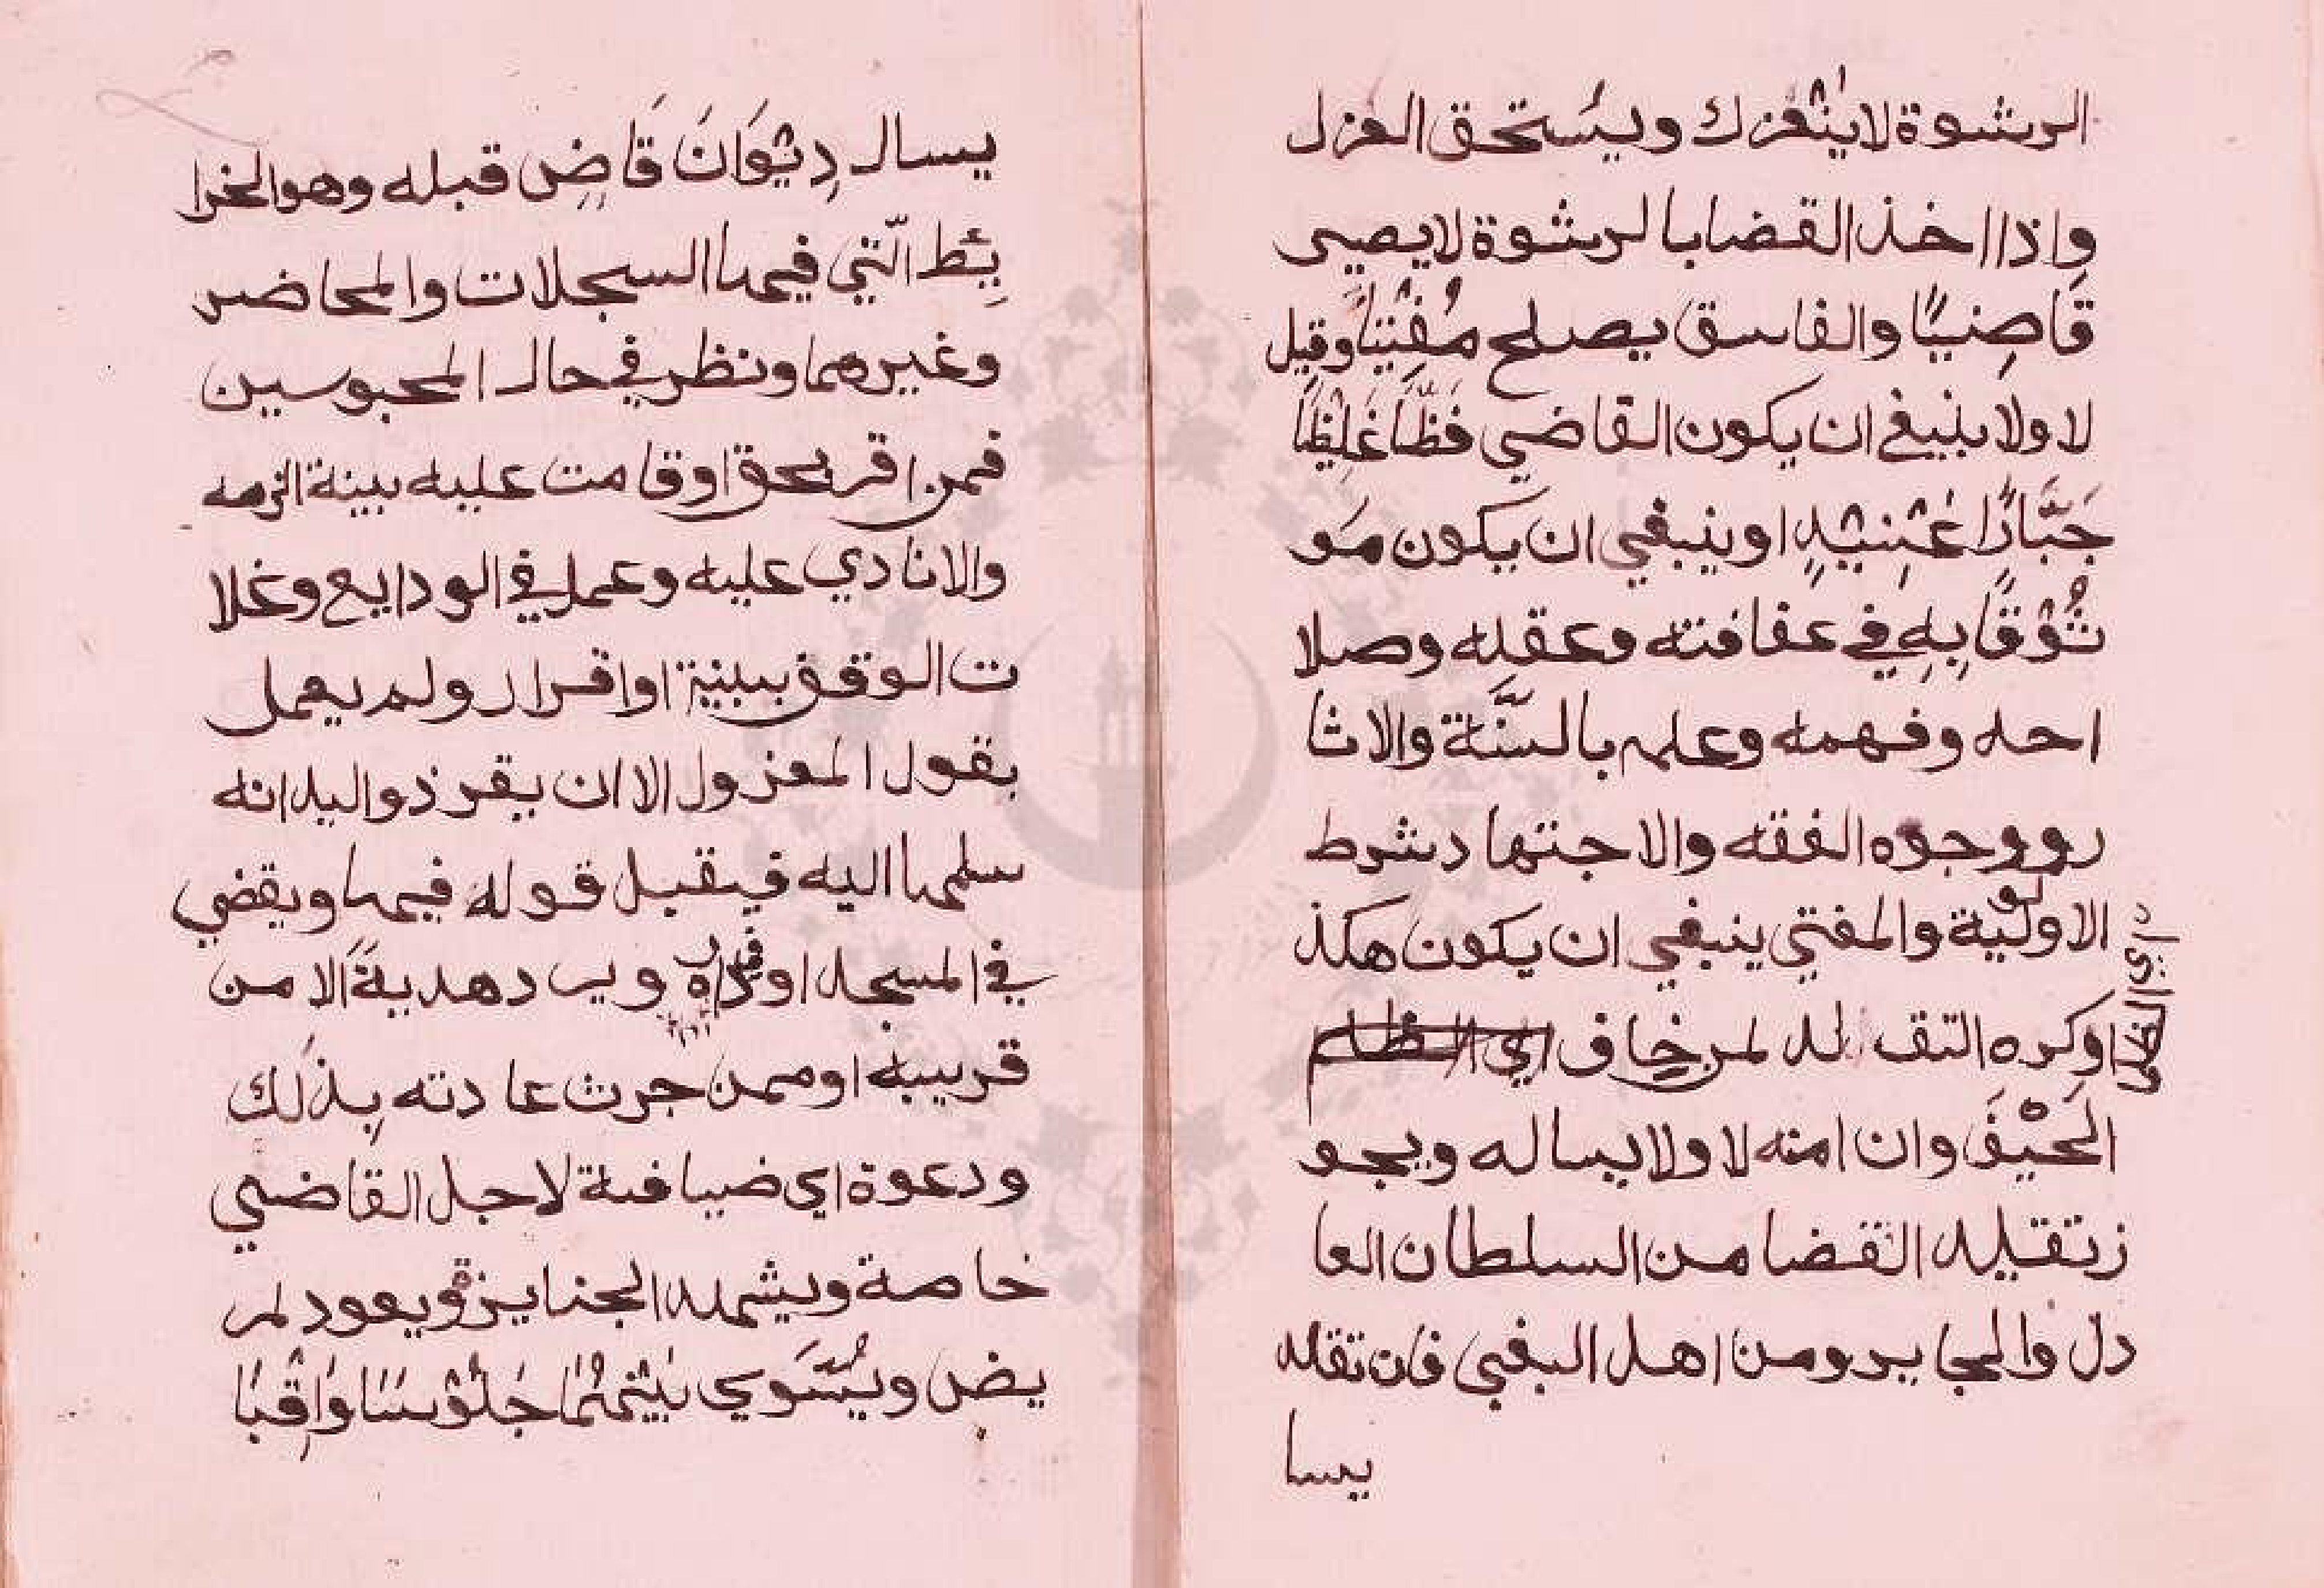 الرشوة لا ينعزل ويستحق العزل
واذا اخذ القضا بالرشوة لا يصير
قاضيًا والفاسق يصلح مُفْتِيًا وقيل
لا ولا ينبغي ان يكون القاضي فَظًّا غَلِيْظًا
جَبَّارًا عَنِيْدٍ او ينبغي ان يكون مَو
ثُوْقًا بِهِ في عفافته وعقله وصلا
احه وفهمه وعلمه بالسنَّة والاثا
ر ووجوه الفقه والاجتهاد شرط
الاولوية والمفتي ينبغي ان يكون هكذ
اوكره التقلد لمن خاف اي الظلم
اي الظلم
الحَيْفَ وان امنه لا ولا يساله ويجو
ز تقليد القضا من السلطان العا
دل والجاير ومن اهل البغي فان تقلد
يسا
يسال دِيْوَانَ قَاضٍ قبله وهو الخرا
ئِط الّتي فيها السجلات والمحاضر
وغيرهما ونظر في حال المحبوسين
فمن اقر بحق او قامت عليه بينة الزمه
والا نادي عليه وعمل في الودايع وغلا
ت الوقف ببينة او اقرار ولم يعمل
بقول المعزول الا ان يقر ذو اليد انه
سلمها اليه فيقبل قوله فيها ويقضي
في المسجد او داره ويرد هديةً الا من
قريبه او ممن جرت عادته بِذلك
ودعوة اي ضيافة لاجل القاضي
خاصة ويشهد الجنايزة ويعود لمر
يض ويُسَّوي بَيْنَهُمَا جُلُوْسًا وَاِقْبَا